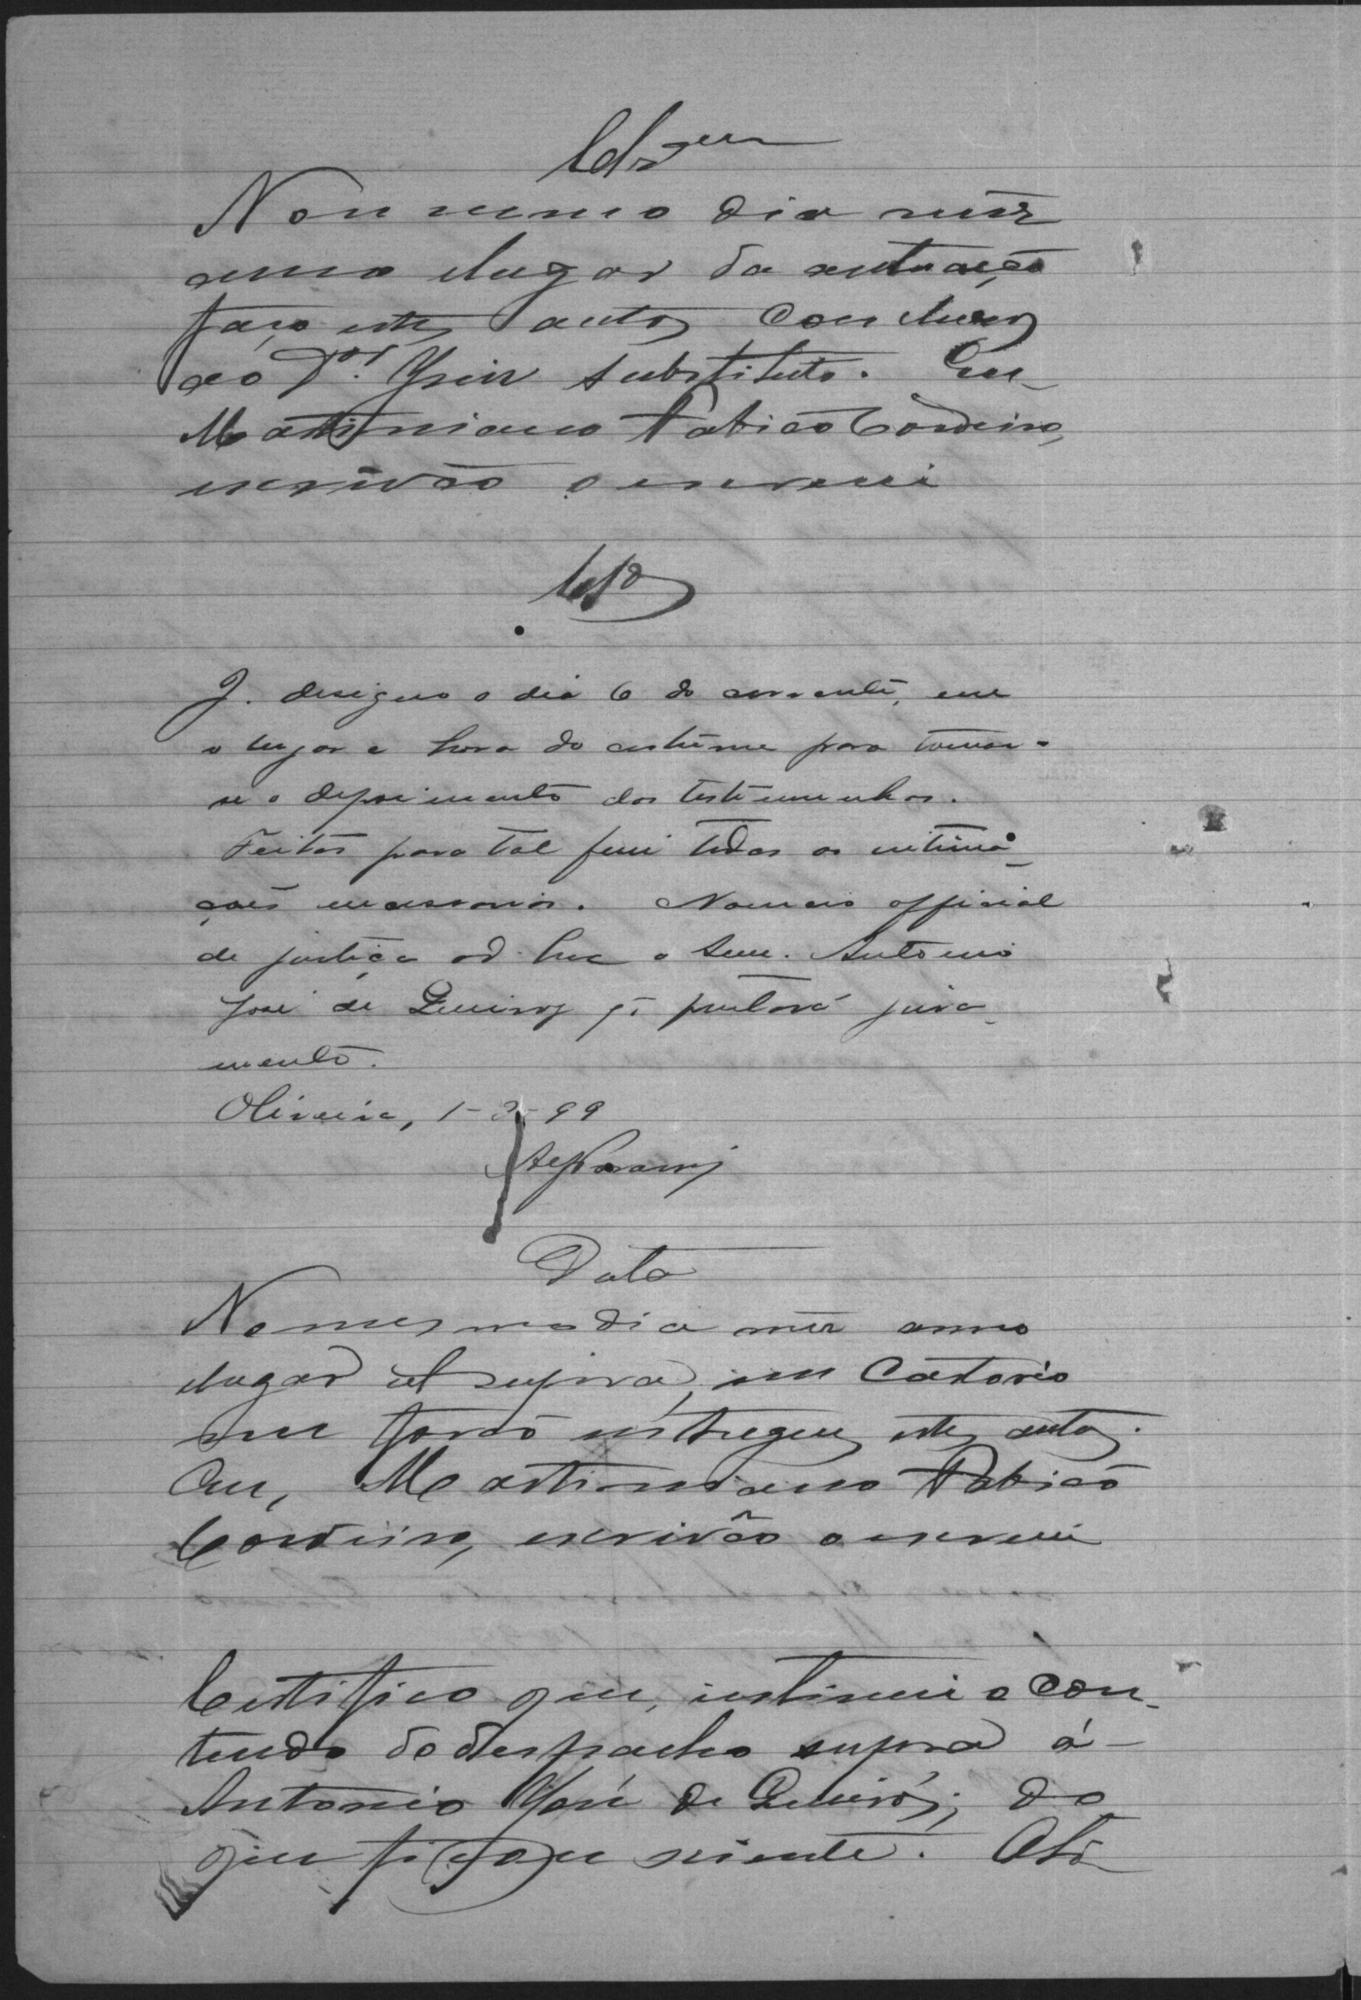 Clsam
No mesmo dia mêz
anno e lugar da autuação
faço estes autos conclusos
ao Dor. Juiz substituto. Eu
Martiniano Fabião Cordeiro,
escrivão o escrevi
Clso
J. designo o dia 6 do corrente, em
o lugar e hora do costume para tomar-
se o depoimento das testemunhas.
Feitas para tal fim todas as intima-
ções necessarias. Nomeio official
de justiça ad hoc o Snr. Antonio
José de Queiroz q̃ prestará jura-
mento.
Oliveira, 1-3-99
Data
No mesmo dia mêz anno
e lugar ut supra, em Cartorio
me forão entregues estes autos.
Eu, Martiniano Fabião
Cordeiro, escrivão o escrevi
Certifico que, intimei o con-
teudo do despacho supra á
Antonio José de Queirós; do
que ficou sciente. Oli-